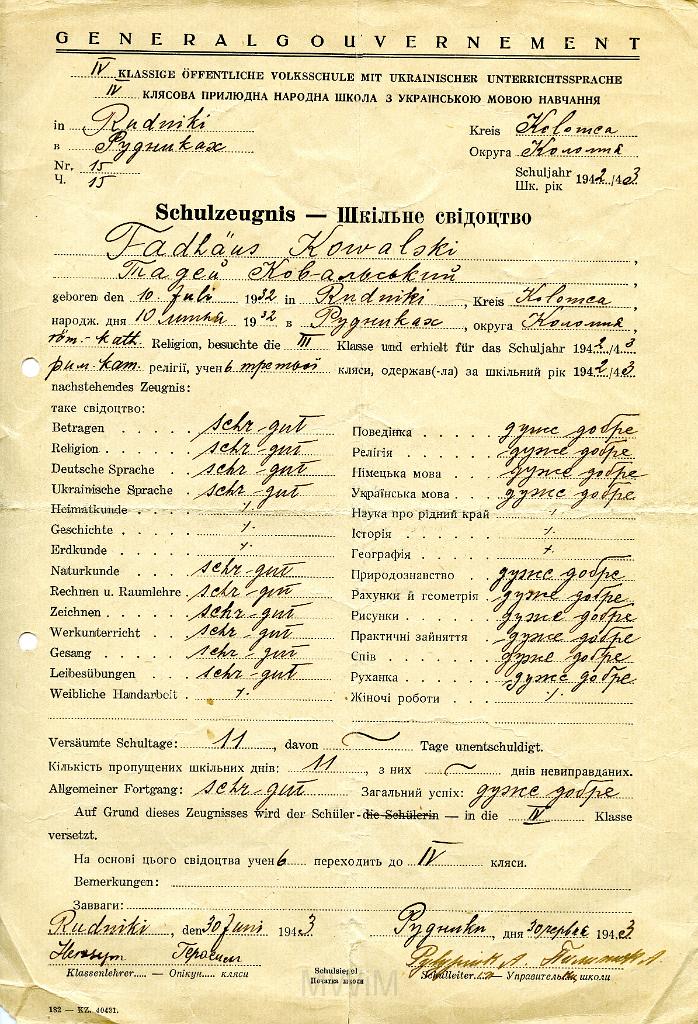 GENERALGOUVERNEMENT
IV KLASSIGE ÖFFENTLICHE VOLKSSCHULE MIT UKRAINISCHER UNTERRICHTSSPRACHE
IV КЛЯСОВА ПРИЛЮДНА НАРОДНА ШКОЛА З УКРАЇНСЬКОЮ МОВОЮ НАВЧАННЯ
in Rudniki Kreis Kolomea
в Рудниках Округа Коломия
Nr. 15 Schuljahr 1942/43
Ч. 15 Шк. рік
Schulzeugnis — Шкільне свідоцтво
Tadhäus Kowalski,
Тадей Ковальський,
geboren den 10 Juli 1932 in Rudniki, Kreis Kolomea,
народж. дня 10 липня 1932 в Рудниках, округа Коломия,
röm.-kath. Religion, besuchte die III Klasse und erhielt für das Schuljahr 1942/43
рим-кат. релігії, учень третьої кляси, одержав(-ла) за шкільний рік 1942/43
nachstehendes Zeugnis:
таке свідоцтво:
Betragen sehr gut Поведінка дуже добре
Religion sehr gut Релігія дуже добре
Deutsche Sprache sehr gut Німецька мова дуже добре
Ukrainische Sprache sehr gut Українська мова дуже добре
Heimatkunde ⁒ Наука про рідний край ⁒
Geschichte ⁒ Історія ⁒
Erdkunde ⁒ Географія ⁒
Naturkunde sehr gut Природознавство дуже добре
Rechnen u. Raumlehre sehr gut Рахунки й геометрія дуже добре
Zeichnen sehr gut Рисунки дуже добре
Werkunterricht sehr gut Практичні зайняття дуже добре
Gesang sehr gut Спів дуже добре
Leibesübungen sehr gut Руханка дуже добре
Weibliche Handarbeit ⁒ Жіночі роботи ⁒
Versäumte Schultage: 11, davon ~ Tage unentschuldigt.
Кількість пропущених шкільних днів: 11, з них ~ днів невиправданих.
Allgemeiner Fortgang: sehr gut Загальний успіх: дуже добре
Auf Grund dieses Zeugnisses wird der Schüler - die Schülerin — in die IV Klasse
versetzt.
На основі цього свідоцтва учень переходить до IV кляси.
Bemerkungen:
Завваги:
Rudniki, den 30 Juni 1943 Рудники, дня 30 червня 1943
Герасим
Klassenlehrer — Опікун кляси Schulsiegel Schulleiter — Управитель школи
Печатка школи
MWM
182 — KZ. 40431.